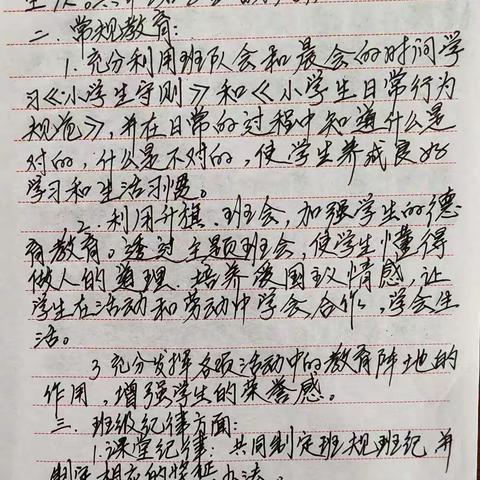 二、常规教育:
1.充分利用班队会和晨会的时间学
习《小学生守则》和《小学生日常行为
规范》,并在日常的过程中知道什么是
对的,什么是不对的,使学生养成良好
学习和生活习惯。
2、利用升旗、班会,加强学生的德
育教育。透过主题班会,使学生懂得
做人的道理,培养爱国主义情感,让
学生在活动和劳动中学会合作,学会生
活。
3.充分发挥各项活动中的教育阵地的
作用,增强学生的荣誉感。
三、班级纪律方面:
1.课堂纪律:共同制定班规班纪,并
制定相应的奖惩办法。